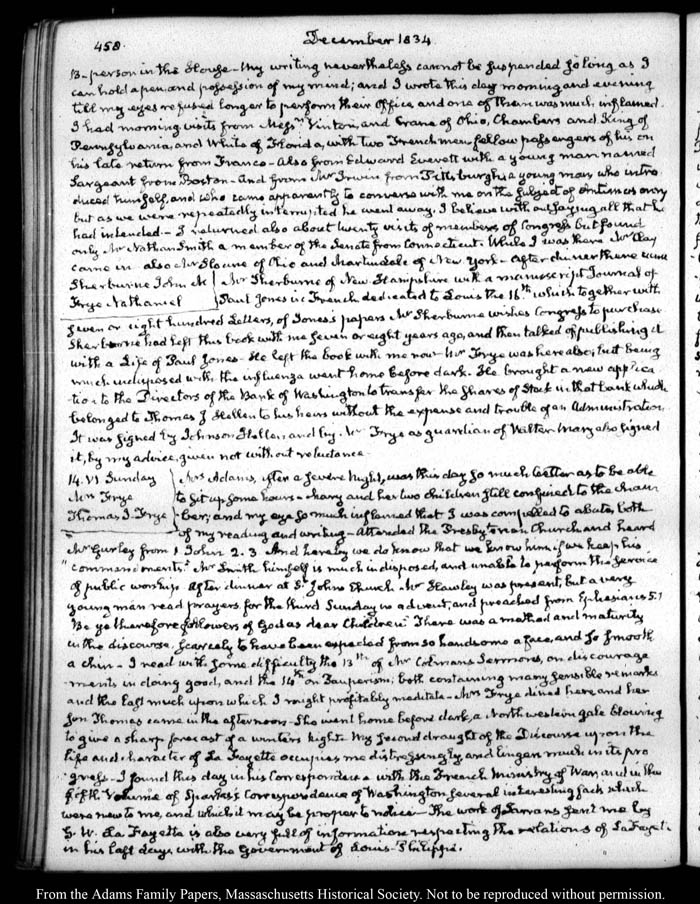 458.
December 1834.
B. person in the House – My writing nevertheless cannot be suspended so long as I
can hold a pen, and possession of my mind; and I wrote this day morning and evening
till my eyes refused longer to perform their Office and one of them was much inflamed.
I had morning visits from Messrs Vinton, and Crane of Ohio, Chambers and King of
Pennsylvania, and White of Florida, with two Frenchmen fellow passengers of his on
his late return from France – Also from Edward Everett with a young man named
Sargeant from Boston – And from Mr Irwin from Pittsburgh, a young man who intro
duced himself, and who came apparently to converse with me on the subject of Antimasonry
but as we were repeatedly interrupted he went away, I believe without saying all that he
had intended – I returned also about twenty visits of members of Congress but found
only Mr Nathan Smith a member of the Senate from Connecticut. While I was there Mr Clay
came in also Mr Sloane of Ohio and Martindale of New York – After dinner there were
Sherburne John H
Frye Nathaniel
Mr Sherburne of New Hampshire with a manuscript Journal of
Paul Jones in French dedicated to Louis the 16th which together with
seven or eight hundred Letters, of Jones's papers Mr Sherburne wishes Congress to purchase
Sherburne had left this book with me seven or eight years ago, and then talked of publishing it
with a Life of Paul Jones – He left the book with me now – Mr Frye was here also; but being
much indisposed with the influenza went home before dark. He brought a new applica
tion to the Directors of the Bank of Washington to transfer the Shares of Stock in that bank which
belonged to Thomas J Hellen to his heirs without the expense and trouble of an Administration
It was signed by Johnson Hellen, and by Mr Frye as guardian of Walter – Mary also signed
it, by my advice, given not without reluctance.
14. VI Sunday
Mrs Frye
Thomas J. Frye
Mrs Adams, after a severe night, was this day so much better as to be able
to sit up some hours – Mary and her two children still confined to the cham
ber; and my eye so much inflamed that I was compelled to abate, both
of my reading and writing – Attended the Presbyterian Church and heard
Mr Gurley from 1 John 2. 3 And hereby we do know that we know him, if we keep his
"commandments." Mr Smith himself is much indisposed, and unable to perform the service
of public worship. After dinner at St Johns Church Mr Hawley was present, but a very
young man read prayers, for the third Sunday in advent, and preached from Ephesians 5.1
Be ye therefore followers of God as dear Children" There was a method and maturity
in the discourse, scarcely to have been expected from so handsome a face, and so smooth
a chin – I read with some difficulty the 13th of Mr Colmans Sermons, on discourage
ments in doing good, and the 14th on Pauperism; both containing many sensible remarks
and the last much upon which I might profitably meditate – Mrs Frye dined here and her
son Thomas came in the afternoon – She went home before dark, a Northwestern gale blowing
to give a sharp forecast of a winters night – My second draught of the Discourse upon the
life and character of La Fayette occupies me distressingly, and lingers much in its pro
gress – I found this day in his Correspondence with the French Ministry of War, and in the
fifth Volume of Sparks's Correspondence of Washington several interesting facts which
were new to me, and which it may be proper to notice – The work of Sarrans sent me by
G. W. La Fayette is also very full of information respecting the relations of La Fayette
in his last days, with the Government of Louis-Philippe.
From the Adams Family Papers, Massachusetts Historical Society. Not to be reproduced without permission.